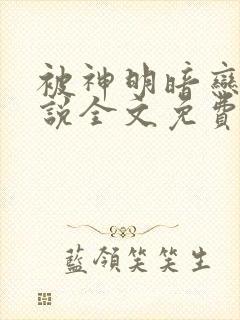 被神明暗戀
說全文免費
藍領笑笑生